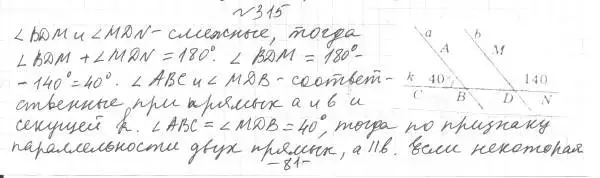 №315
∠BDM и ∠MDN - смежные, тогда
∠BDM + ∠MDN = 180°. ∠BDM = 180° -
- 140° = 40°. ∠ABC и ∠MDB - соответ-
ственные, при прямых a и b и
секущей k. ∠ABC = ∠MDB = 40°, тогда по признаку
параллельности двух прямых, a || b. Если некоторая
a b
A M
k 40° 140
C B D N
-81-